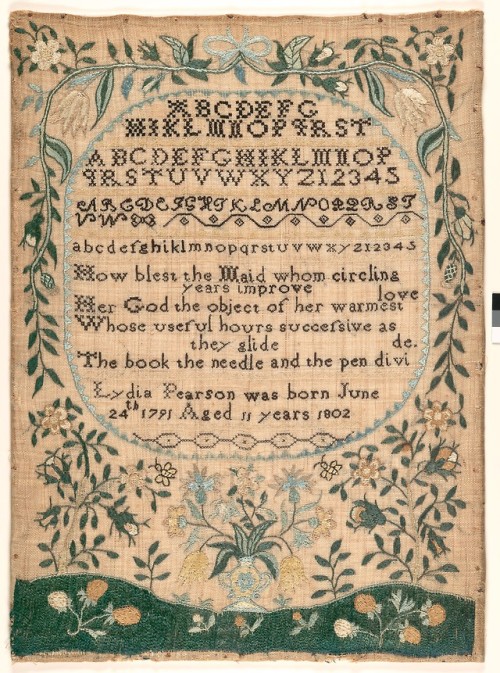 ABCDEFG
HIKLMNOPQRST
ABCDEFGHIKLMNOP
QRSTUVWXYZ12345
ABCDEFGHIKLMNOPQRST
UVW
abcdefghiklmnopqrstuvwxyz12345
How blest the Maid whom circling
years improve
Her God the object of her warmest love
Whose useful hours succeſsive as
they glide
The book the needle and the pen divide.
Lydia Pearson was born June
24th 1791 Aged 11 years 1802